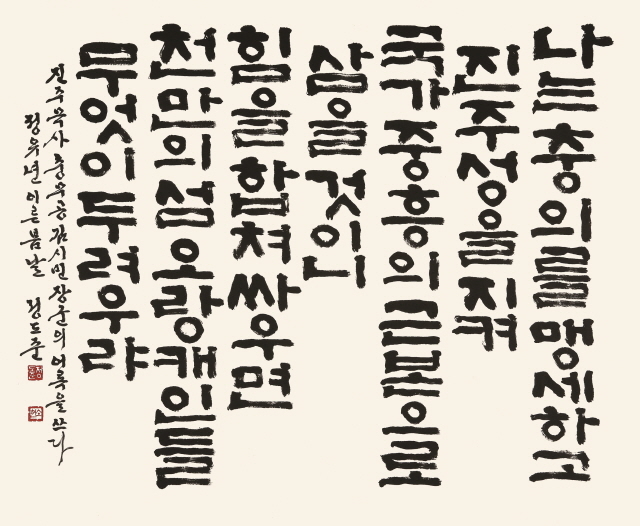 나는 충의를 맹세하고
진주성을 지켜
국가 중흥의 근본으로
삼을 것이니
힘을 합쳐 싸우면
천만의 섬 오랑캐인들
무엇이 두려우랴
진주목사 충무공 김시민 장군의 어록을 쓰다
정유년 이른 봄날 정도준